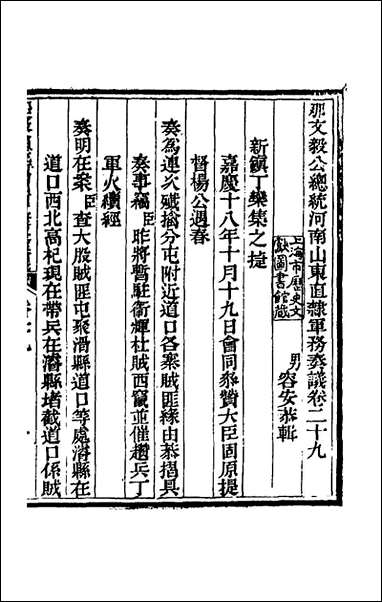 那文毅公總統河南山東直隸軍務奏議卷二十九
上海市歷史文
獻圖書館藏
男 容安恭輯
新鎮丁欒集之捷
嘉慶十八年十月十九日會同叅贊大臣固原提
督楊公遇春
奏為連次殲擒分屯附近道口各寨賊匪緣由恭摺具
奏事竊臣昨將暫駐衛輝杜賊西竄並催趲兵丁
軍火續經
奏明在案臣查大股賊匪屯聚滑縣道口等處濬縣在
道口西北高杞現在帶兵在濬縣堵截道口係賊